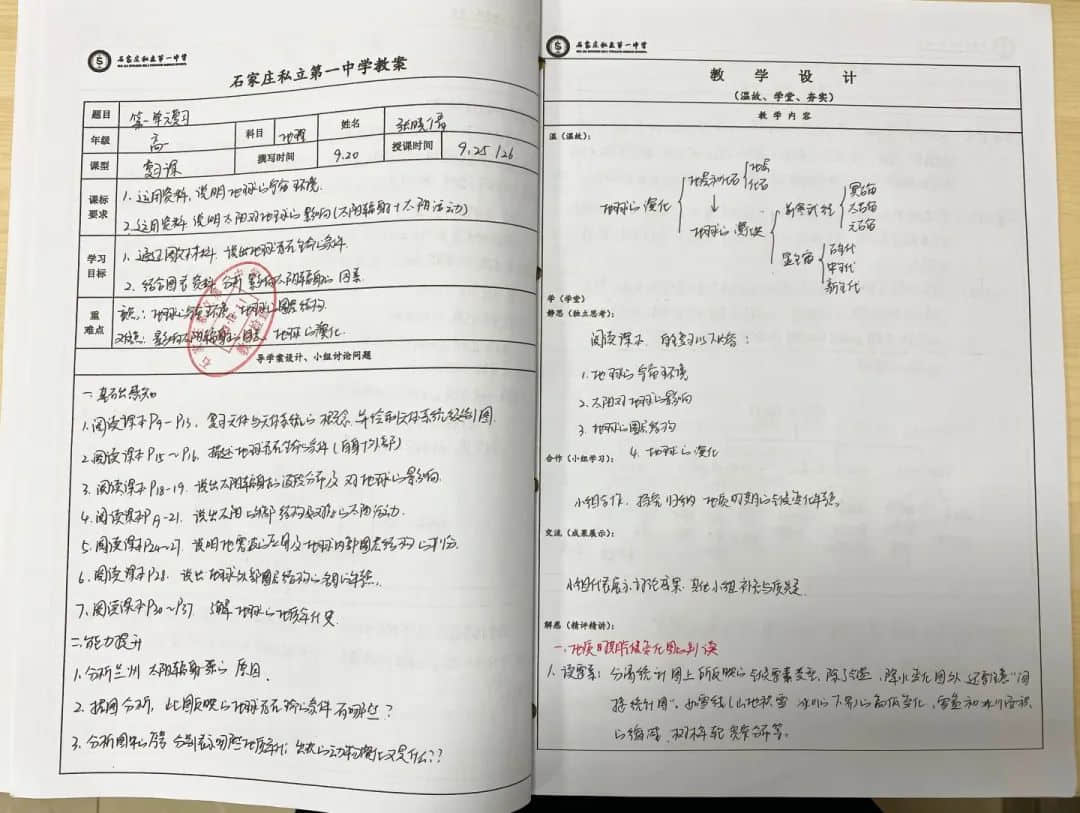 石家庄私立第一中学
石家庄私立第一中学教案
题目 第一单元复习
年级 高一 科目 地理 姓名 张晓倩
课型 复习课 撰写时间 9.20 授课时间 9.25/26
课标要求 1. 运用资料,说明地球的宇宙环境.
2. 运用资料 说明太阳对地球的影响(太阳辐射+太阳活动)
学习目标 1. 通过图文材料 说出地球存在生命的条件.
2. 结合图表资料 分析影响太阳辐射的因素.
重难点 重点: 地球的宇宙环境 地球的圈层结构.
难点: 影响太阳辐射的因素、地球的演化.
导学案设计、小组讨论问题
一.基础感知
1.阅读课本P9-P13. 复习天体与天体系统的概念.并绘制天体系统级别图.
2.阅读课本P15~P16. 描述地球存在生命的条件(自身+外部)
3.阅读课本P18-19. 说出太阳辐射的 及对地球的影响.
4.阅读课本P -21. 说出太阳的外部结构及对应的太阳活动.
5.阅读课本P24~27. 说明地震波的应用及地球内部圈层结构的划分.
6.阅读课本P28. 说出地球外部圈层结构的 .
7.阅读课本P30~P37. 了解地球的地质年代史
二.能力提升
1.分析兰州太阳辐射 的原因.
2.据图分析,此图反映的地球存在生命的条件有哪些?
3.分析图中 分别表示哪些地质年代;出现的动植物演化又是什么??
石家庄私立第一中学
教 学 设 计
(温故、学堂、夯实)
教 学 内 容
温(温故):
地球的演化
地层和化石 地层 化石
↓
地球的演化
前寒武纪 冥古宙 太古宙 元古宙
显生宙 古生代 中生代 新生代
学(学堂)
静思(独立思考):
阅读课本,自主复习以下内容:
1.地球的宇宙环境
2.太阳对地球的影响
3.地球的圈层结构
合作(小组学习): 4.地球的演化
小组合作,探究归纳 地质时期的气候变化特点.
交流(成果展示):
小组代表展示讨论成果,其他小组补充与质疑.
解惑(精评精讲):
一.地质时期 气候变化图的判读
1.读要素:分清统计图上所反映的气候要素类型,除气温、降水变化图外 还要注意“间
接统计图”.如雪线(山地积雪 冰川的下界)的高低变化、雪盖和冰川面积
的缩减、树木年轮宽窄等.